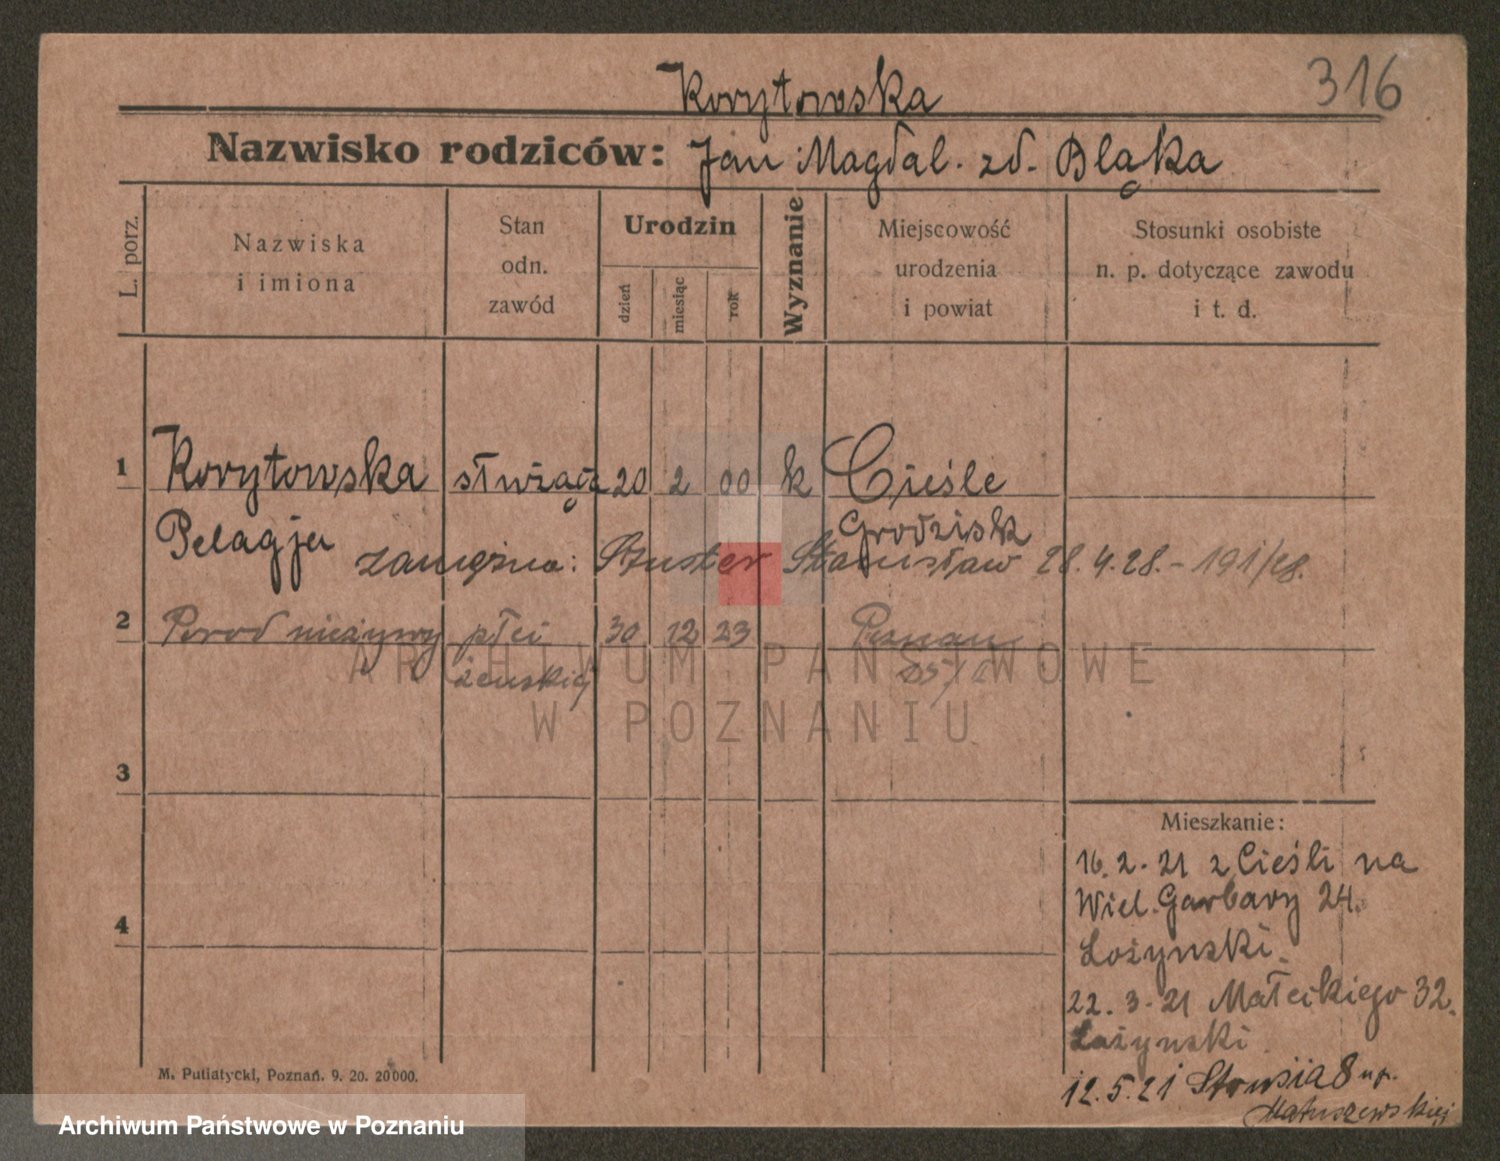 316
Korytowska
Nazwisko rodziców: Jan Magdal. zd. Bląka
L. porz.
Nazwiska
i imiona
Stan
odn.
zawód
Urodzin
dzień
miesiąc
rok
Wyznanie
Miejscowość
urodzenia
i powiat
Stosunki osobiste
n. p. dotyczące zawodu
i t. d.
1 Korytowska służąca 20 2 00 k Cieśle
Pelagja Grodzisk
zamężna: Szuster Stanisław 28.4.28. - 191/28.
2 Poród nieżywy płci 30 12 23 Poznań
żeńskiej
ARCHIWUM PAŃSTWOWE
W POZNANIU
3
4
Mieszkanie:
16.2.-21 z Cieśli na
Wiel. Garbary 24.
Łożynski.
22.3.-21 Małeckiego 32.
Łożynski.
12.5.21 8 np.
Matuszewskiej
M. Putiatycki, Poznań. 9. 20. 20000.
Archiwum Państwowe w Poznaniu